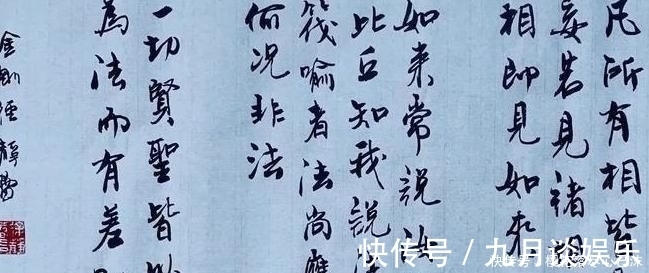 凡所有相皆
妄若見諸相
相即見如來
如来常說
比丘知我說法
筏喻者法尚應
何況非法
一切賢聖皆以
為法而有差別
金剛經 靜蕾
快传号/九月谈娱乐
快传号/